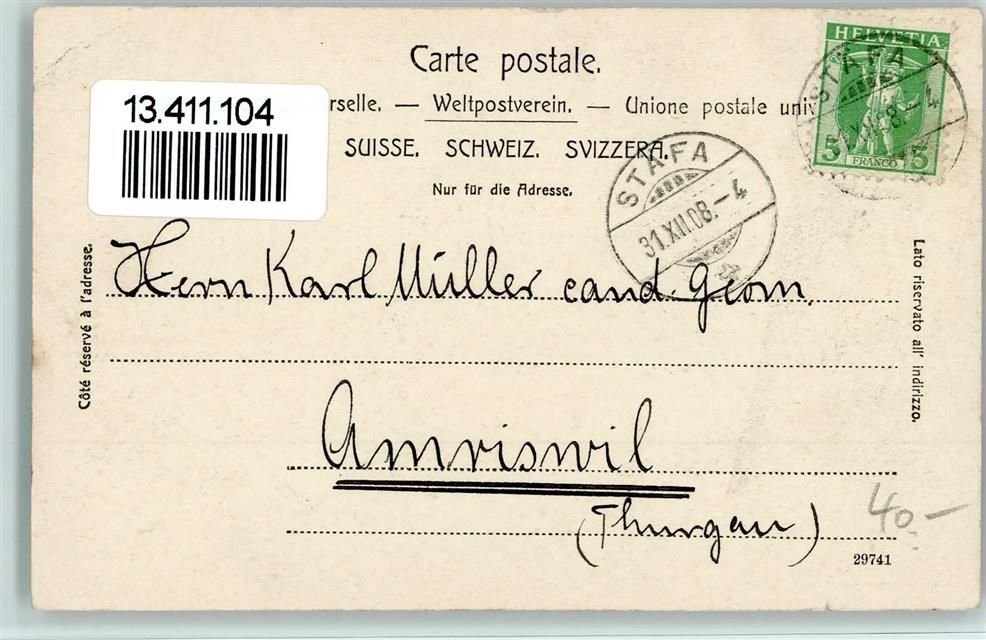 Carte postale.
13.411.104
rselle. — Weltpostverein. — Unione postale univ
SUISSE. SCHWEIZ. SVIZZERA.
Nur für die Adresse.
HELVETIA
5 FRANCO 5
STÄFA
XII.08.–4
STÄFA
31.XII.08.–4
Côté réservé à l'adresse.
Lato riservato all' indirizzo.
Herrn Karl Müller cand. Geom.
Amriswil
(Thurgau)
40.–
29741